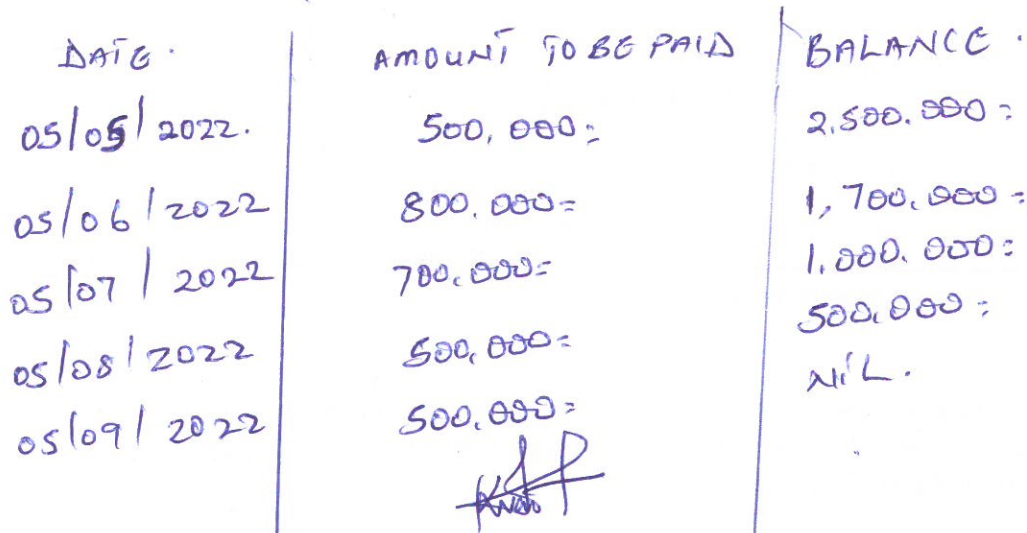 DATE. AMOUNT TO BE PAID BALANCE.
05/05/2022. 500,000= 2.500.000=
05/06/2022 800.000= 1,700.000=
05/07/2022 700.000= 1.000.000=
05/08/2022 500,000= 500.000=
05/09/2022 500.000= NIL.